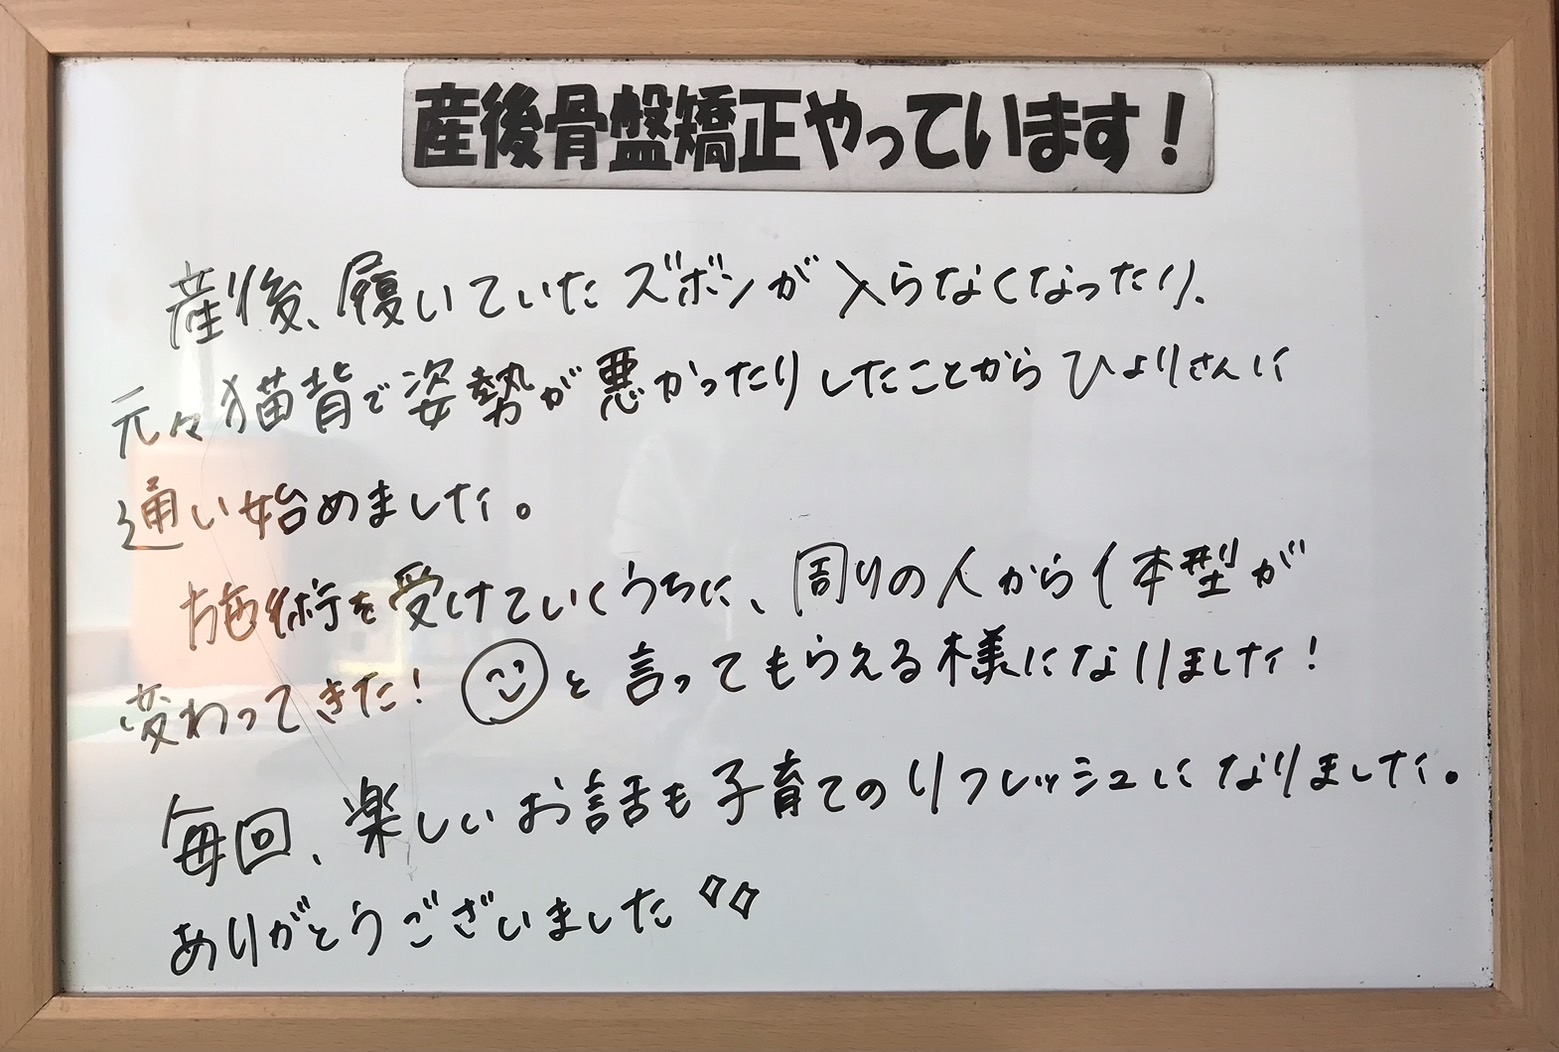 産後骨盤矯正やっています！
産後、履いていたズボンが入らなくなったり、
元々猫背で姿勢が悪かったりしたことからひよりさんに
通い始めました。
施術を受けていくうちに、周りの人から体型が
変わってきた！と言ってもらえる様になりました！
毎回、楽しいお話も子育てのリフレッシュになりました。
ありがとうございました